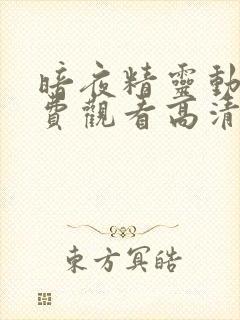 暗夜精靈動
費觀看高清
東方冥皓